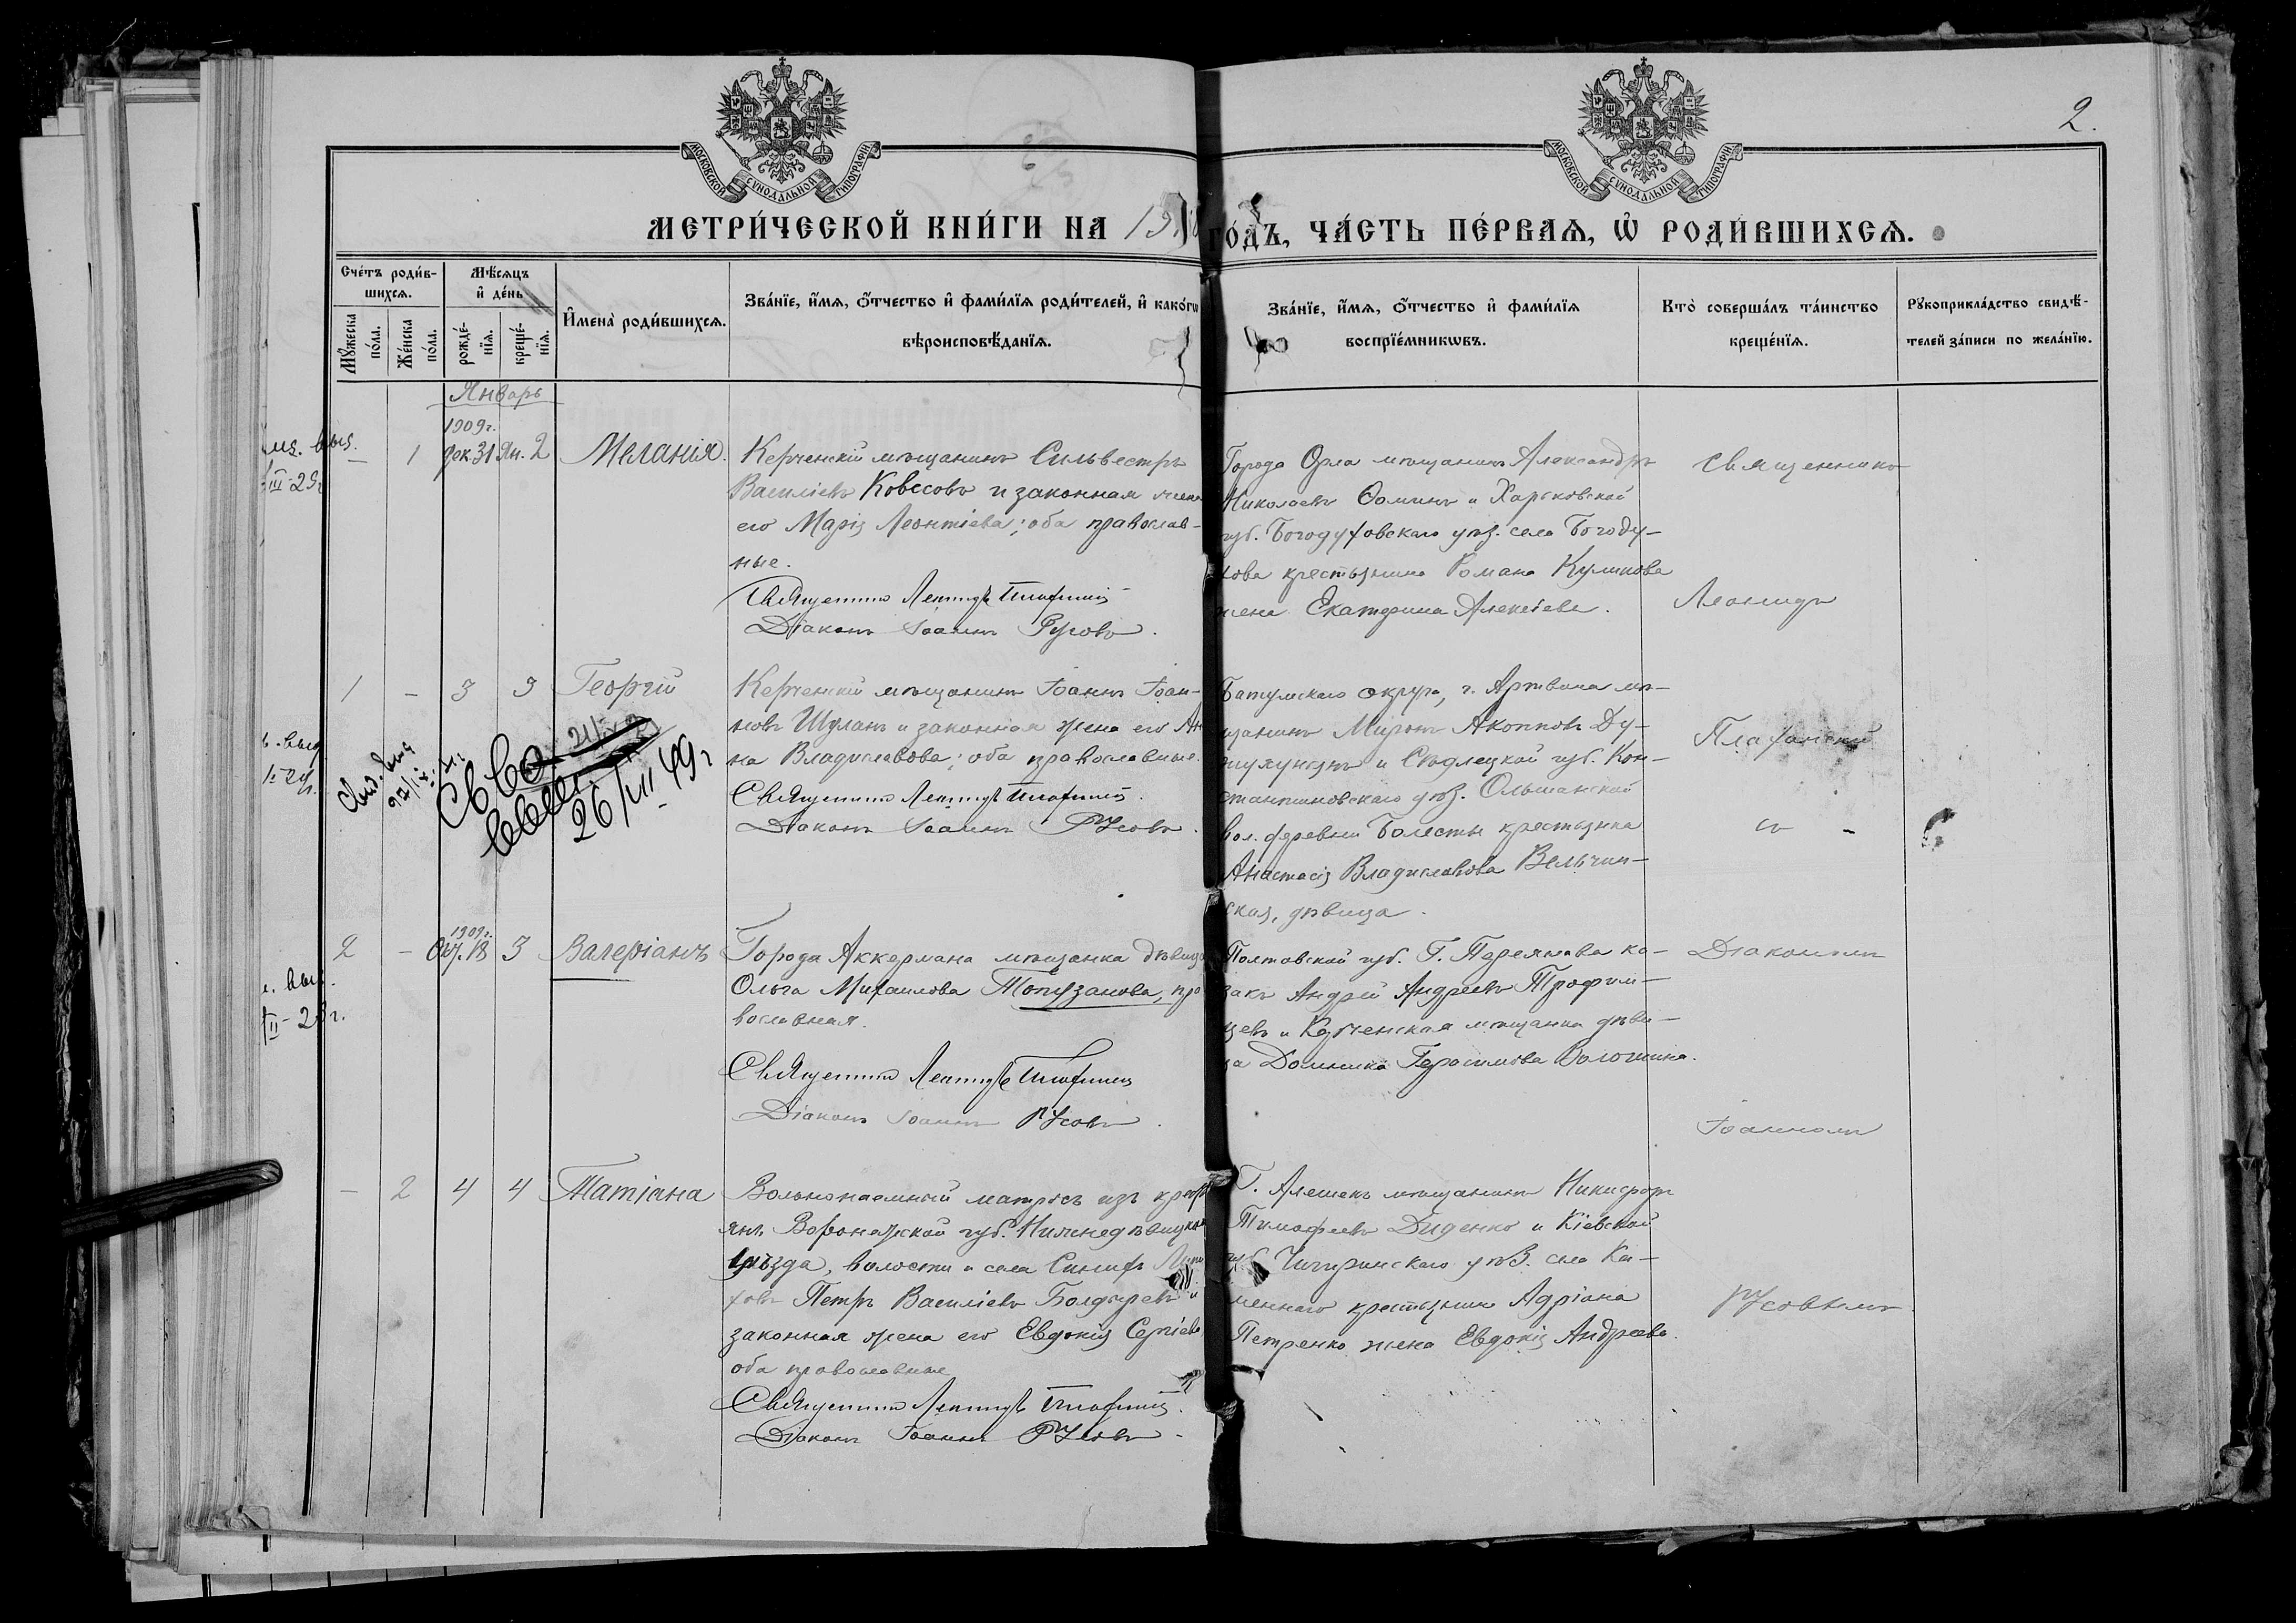 2.
МОСКОВСКОЙ СУНОДАЛЬНОЙ ТИПОГРАФІИ
МОСКОВСКОЙ СУНОДАЛЬНОЙ ТИПОГРАФІИ
МЕТРИ́ЧЕСКОЙ КНИ́ГИ НА 1910 ГО́ДЪ, ЧА́СТЬ ПЕ́РВАЯ, Ѡ҆ РОДИ́ВШИХСЯ.
Сче́тъ роди́в-
шихся.
Мꙋ́жеска по́ла.
Же́нска по́ла.
Мѣ́сяцъ
и҆ де́нь
рожде́-
нїя.
креще́-
нїя.
И҆мена̀ роди́вшихся.
Зва́нїе, и҆́мя, ѻ҆́тчество и҆ фами́лїя роди́телей, и҆ како́гѡ
вѣроисповѣ́данїя.
Зва́нїе, и҆́мя, ѻ҆́тчество и҆ фами́лїя
воспрїе́мникѡвъ.
Кто̀ соверша́лъ та́инство
креще́нїя.
Рꙋкоприкла́дство свидѣ́-
телей за́писи по жела́нїю.
Январь
1909 г.
— 1 Дек. 31 Ян. 2 Меланія.
Керченскій мѣщанинъ Сильвестръ
Василіевъ Ковесовъ и законная жена
его Марія Леонтіева; оба православ-
ные.
Священникъ Леонидъ
Діаконъ Іоаннъ Русовъ.
Города Орла мѣщанинъ Александръ
Николаевъ Ѳоминъ и Харьковской
губ. Богодуховскаго уѣз. села Богоду-
хова крестьянина Романа Куликова
жена Екатерина Алексѣева.
Священникъ
Леонидъ
1 — 3 3 Георгій
Керченскій мѣщанинъ Іоаннъ Іоан-
новъ Шулакъ и законная жена его Ан-
на Владиславова; оба православные.
Священникъ Леонидъ
Діаконъ Іоаннъ Русовъ.
Батумскаго округа, г. Артвина мѣ-
щанинъ Миронъ Акоповъ Ду-
и Сѣдлецкой губ. Кон-
стантиновскаго уѣз. Ольшанской
вол. деревни Болесты крестьянка
Анастасія Владиславова Вельчин-
ская, дѣвица.
26/VII 49 г
1909 г.
2 — Окт. 18 3 Валеріанъ
Города Аккермана мѣщанка дѣвица
Ольга Михаилова Топузанова, пра-
вославная.
Священникъ Леонидъ
Діаконъ Іоаннъ Русовъ.
Полтавской губ. Г. Переяслава ка-
закъ Андрей Андреевъ Трофим-
цевъ и Керченская мѣщанка дѣви-
ца Домника Герасимова Волошина.
съ
Діакономъ
Іоанномъ
— 2 4 4 Татіана
Вольнонаемный матросъ изъ крест-
янъ Воронежской губ. Нижнедѣвицкаго
уѣзда, волости и села Синихъ Липя-
говъ Петръ Василіевъ Болдыревъ и
законная жена его Евдокія Сергіева
оба православные
Священникъ Леонидъ
Діаконъ Іоаннъ Русовъ.
Г. Алешекъ мѣщанинъ Никифоръ
Тимофеевъ Диденко и Кіевской
губ. Чигиринскаго уѣз. села Ка-
меннаго крестьянина Адріана
Петренко жена Евдокія Андреева.
Русовымъ